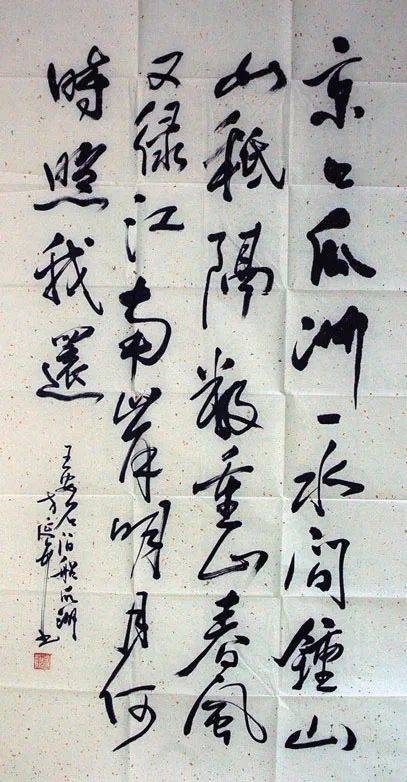 京口瓜洲一水间鍾山
山秪隔数重山春風
又绿江南岸明月何
時照我還
王安石泊船瓜洲
方延书